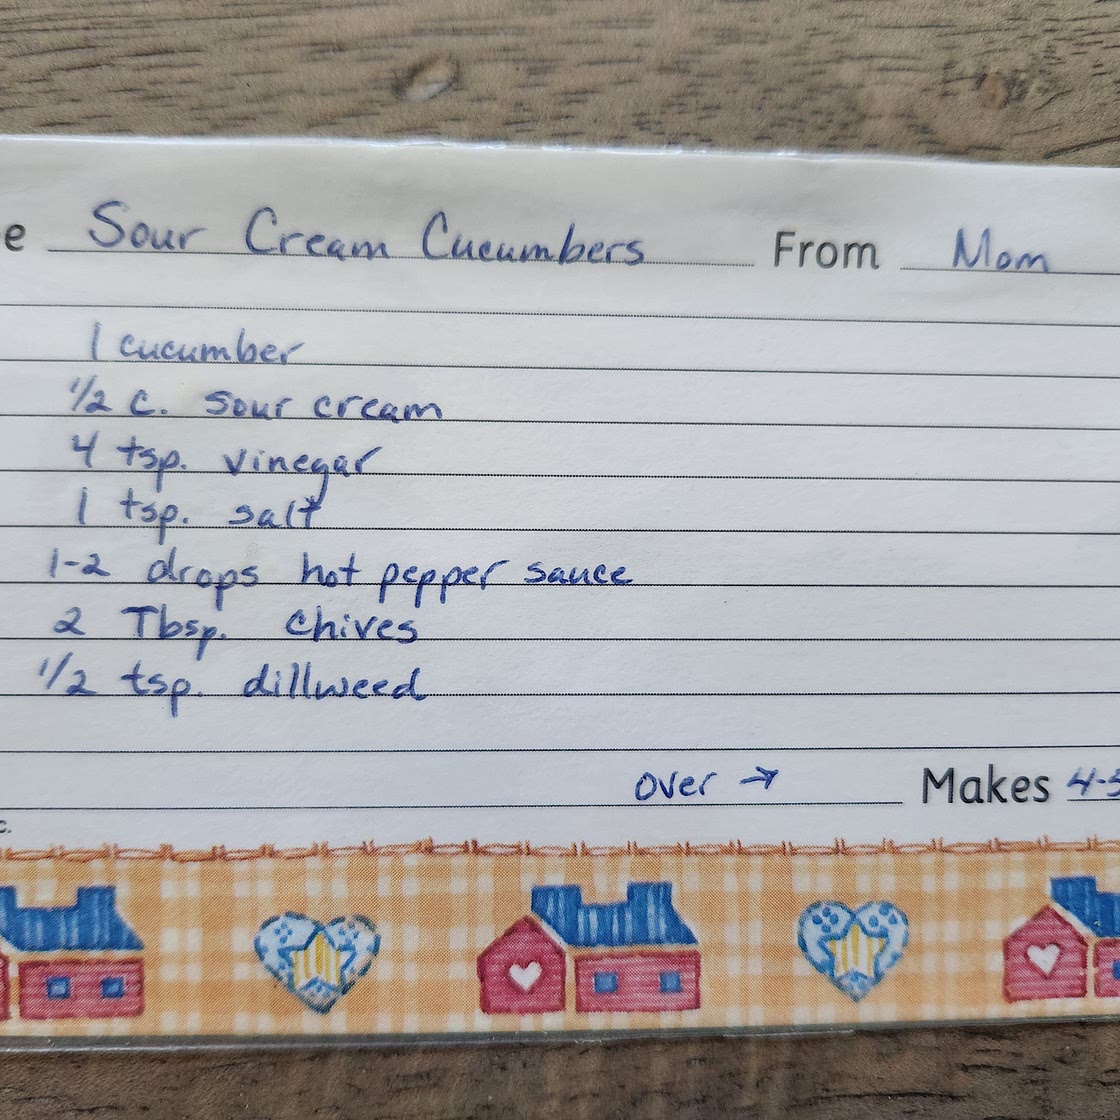 e Sour Cream Cucumbers From Mom
1 cucumber
1/2 c. sour cream
4 tsp. vinegar
1 tsp. salt
1-2 drops hot pepper sauce
2 Tbsp. chives
1/2 tsp. dillweed
over → Makes 4-5
c.